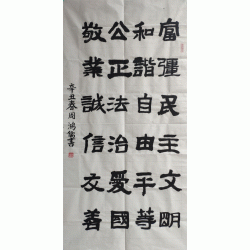 富彊民主文明
和諧自由平等
公正法治愛國
敬業誠信友善
辛丑春周鴻儒書